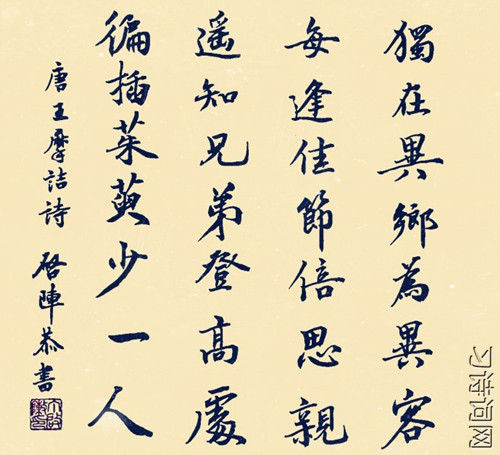 獨在異鄉為異客
每逢佳節倍思親
遥知兄弟登高處
徧插茱萸少一人
唐王摩詰詩 啓陣恭書
习诗词网